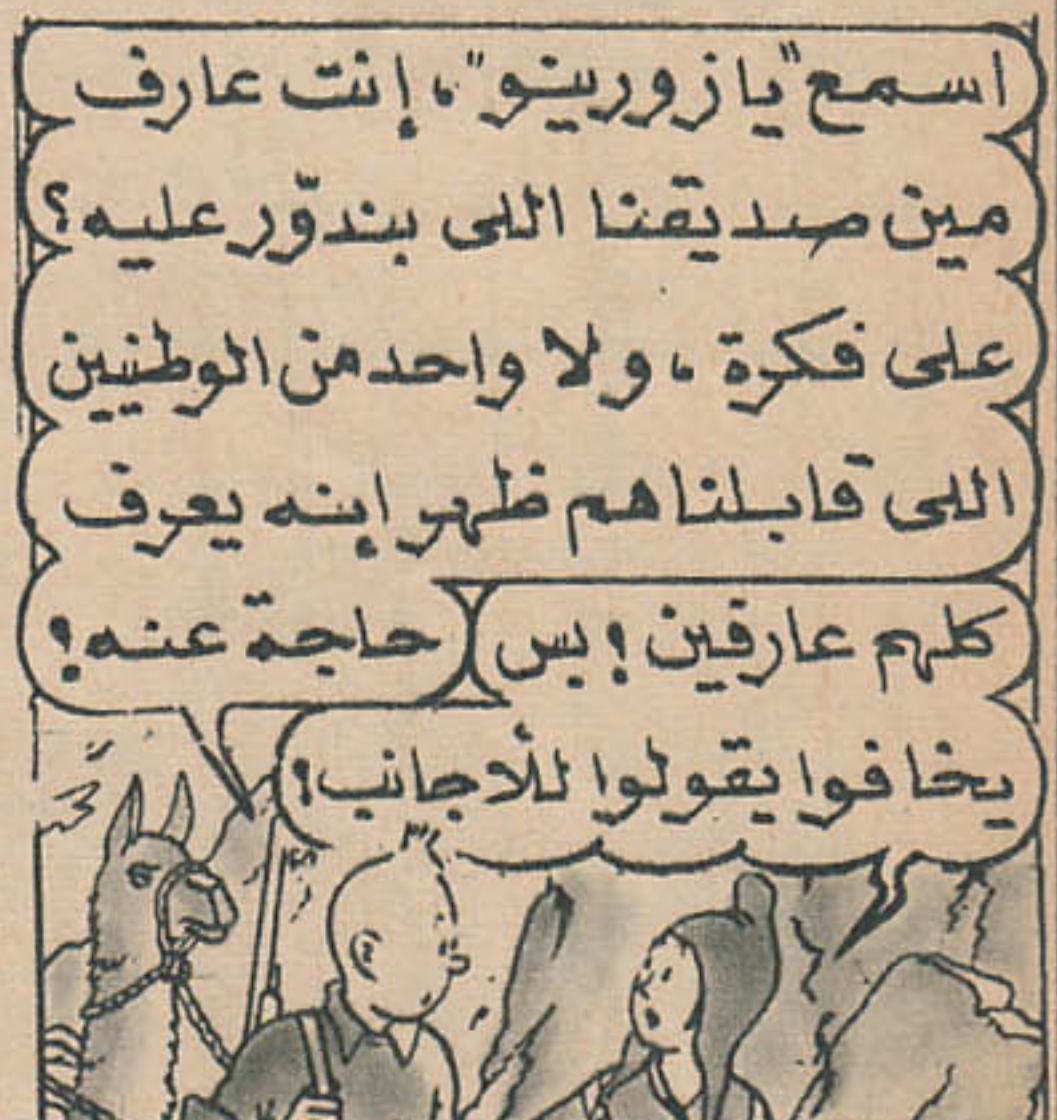 اسمع "يا زورينو"، إنت عارف
مين صديقنا اللى بندوّر عليه؟
على فكرة، ولا واحد من الوطنيين
اللى قابلناهم ظهر إنه يعرف
حاجة عنه؟
كلهم عارفين! بس
يخافوا يقولوا للأجانب!